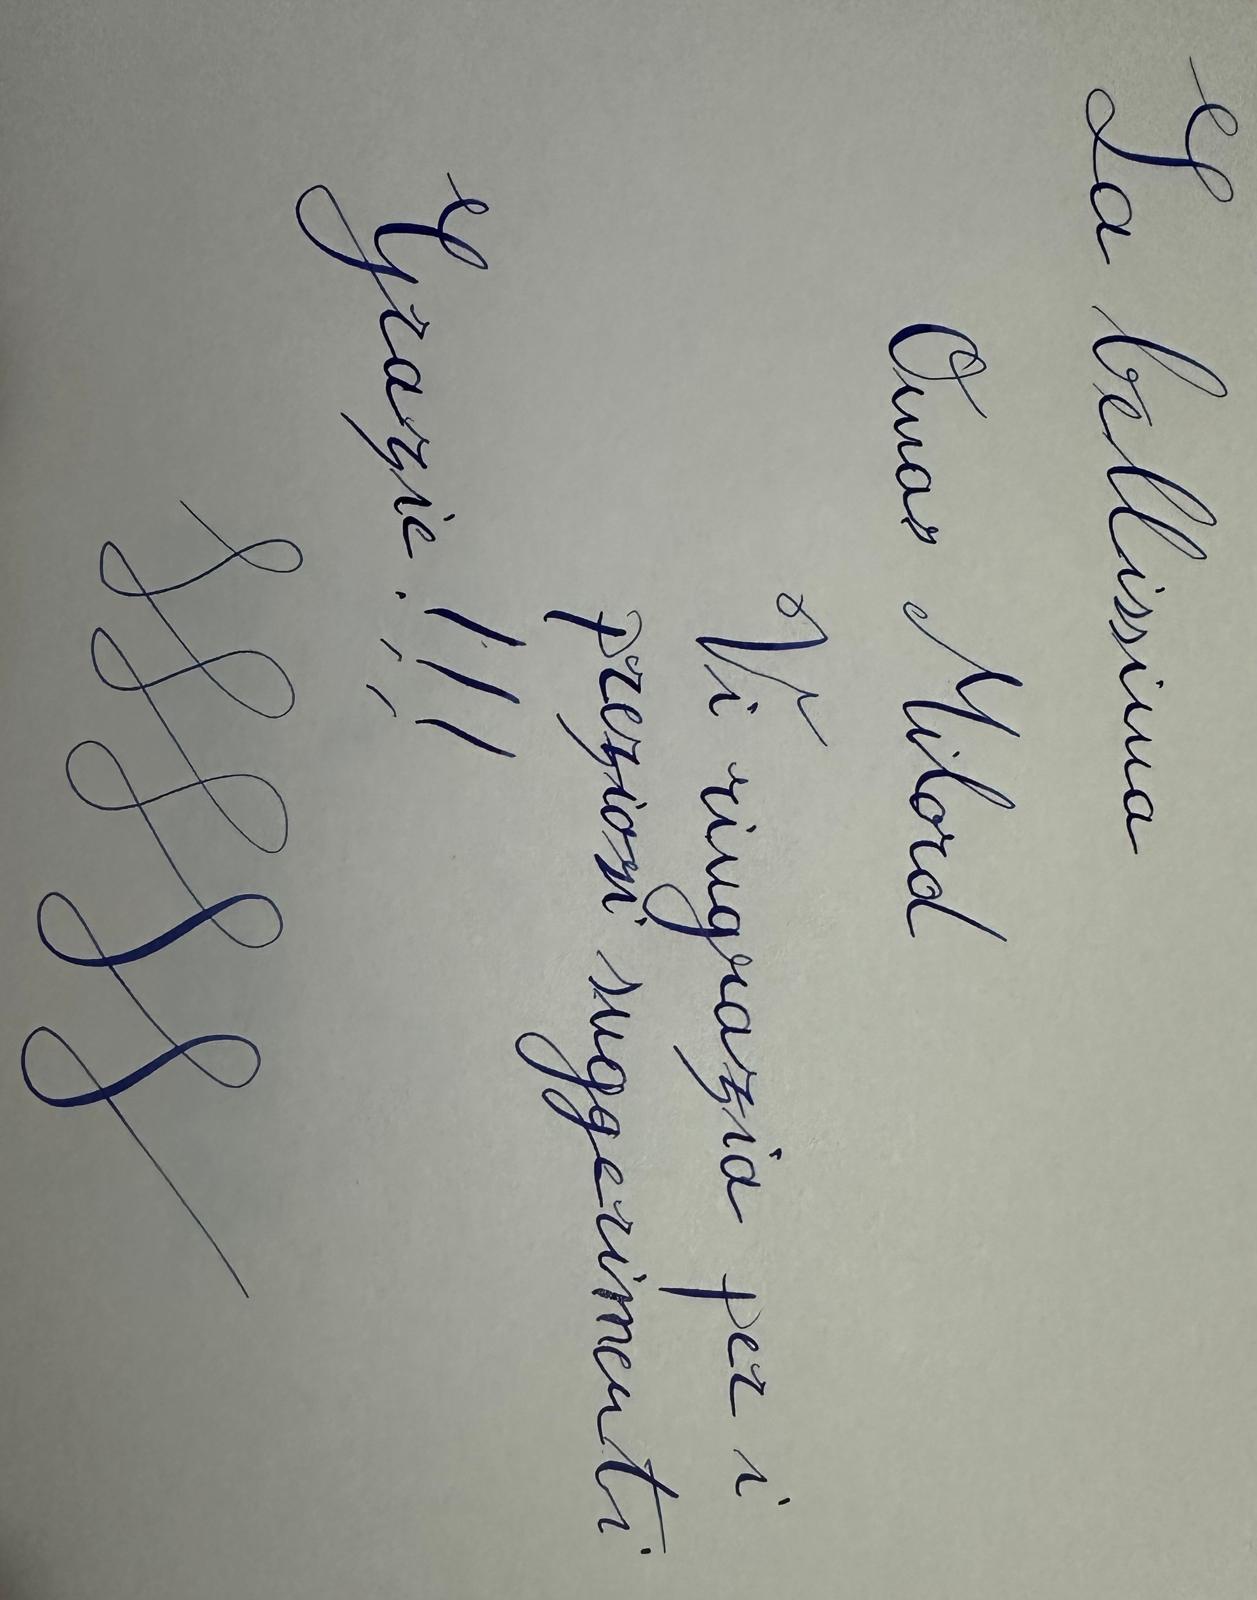 La bellissima
Omas Milord
Vi ringrazia per i
preziosi suggerimenti
Grazie!!!